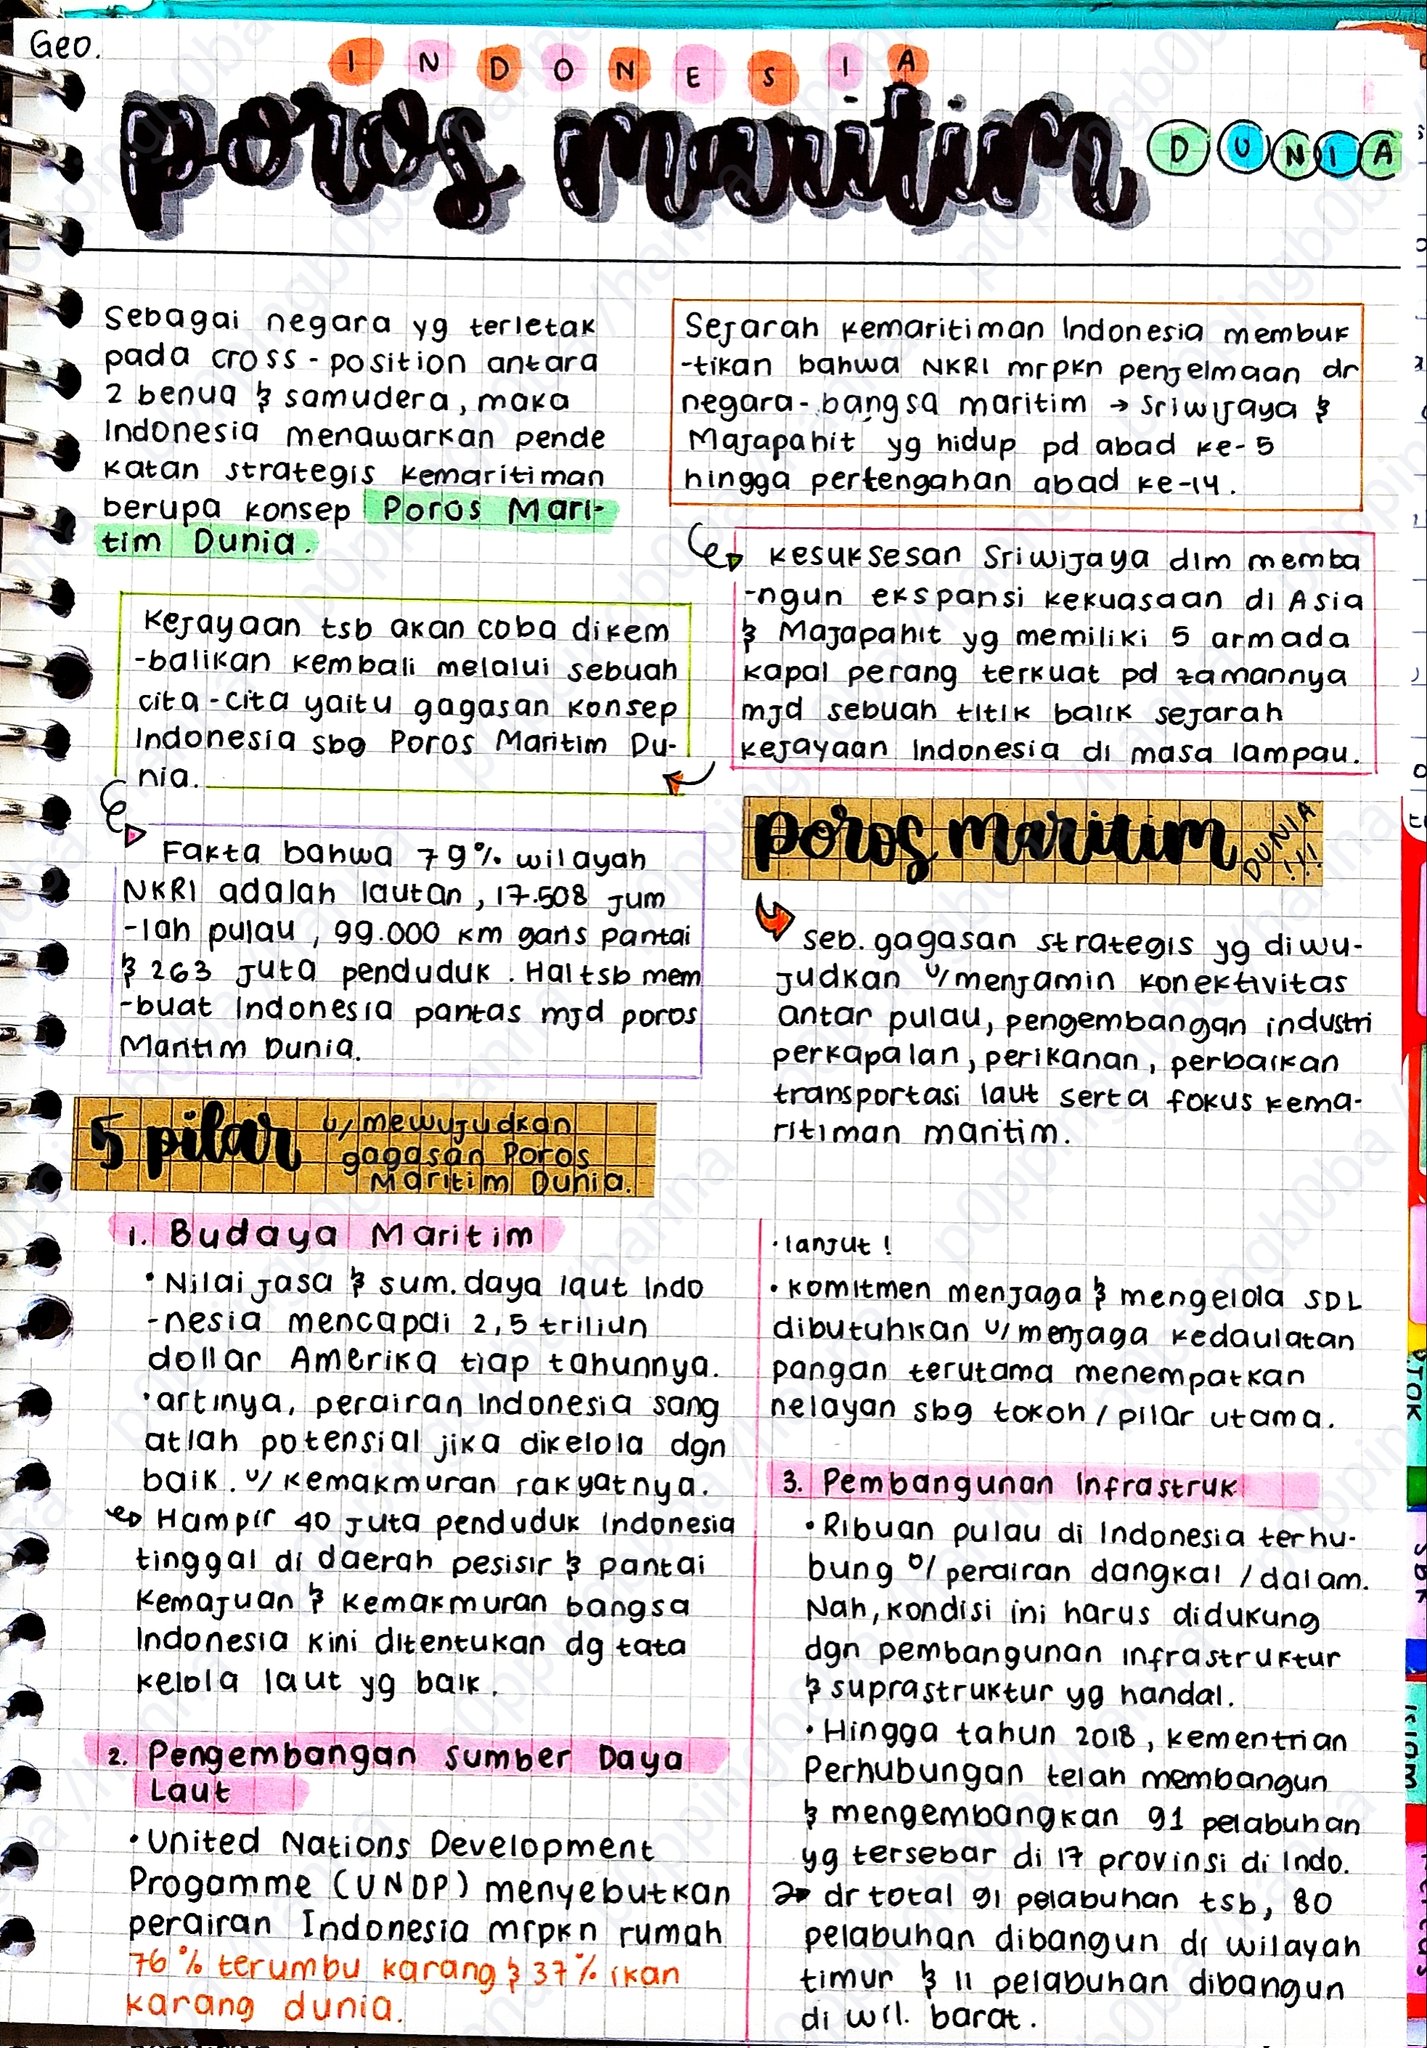 Geo.
INDONESIA
poros maritim
DUNIA
Sebagai negara yg terletak
pada cross-position antara
2 benua & samudera, maka
Indonesia menawarkan pende
katan strategis kemaritiman
berupa konsep Poros Mari-
tim Dunia.
Sejarah kemaritiman Indonesia membuk
-tikan bahwa NKRI mrpkn penjelmaan dr
negara-bangsa maritim → Sriwijaya &
Majapahit yg hidup pd abad ke-5
hingga pertengahan abad ke-14.
Kesuksesan Sriwijaya dlm memba
-ngun ekspansi kekuasaan di Asia
& Majapahit yg memiliki 5 armada
kapal perang terkuat pd zamannya
mjd sebuah titik balik sejarah
kejayaan Indonesia di masa lampau.
Kejayaan tsb akan coba dikem
-balikan kembali melalui sebuah
cita-cita yaitu gagasan konsep
Indonesia sbg Poros Maritim Du-
nia.
Fakta bahwa 79% wilayah
NKRI adalah lautan, 17.508 jum
-lah pulau, 99.000 km garis pantai
& 263 juta penduduk. Hal tsb mem
-buat Indonesia pantas mjd poros
Maritim Dunia.
poros maritim DUNIA !!!
seb. gagasan strategis yg diwu-
judkan u/ menjamin konektivitas
antar pulau, pengembangan industri
perkapalan, perikanan, perbaikan
transportasi laut serta fokus kema-
ritiman maritim.
5 pilar u/ mewujudkan
gagasan Poros
Maritim Dunia.
1. Budaya Maritim
• Nilai jasa & sum. daya laut Indo
-nesia mencapai 2,5 triliun
dollar Amerika tiap tahunnya.
• artinya, perairan Indonesia sang
atlah potensial jika dikelola dgn
baik. u/ kemakmuran rakyatnya.
Hampir 40 juta penduduk Indonesia
tinggal di daerah pesisir & pantai
kemajuan & kemakmuran bangsa
Indonesia kini ditentukan dg tata
kelola laut yg baik.
2. Pengembangan Sumber Daya
Laut
• United Nations Development
Progamme (UNDP) menyebutkan
perairan Indonesia mrpkn rumah
76% terumbu karang & 37% ikan
karang dunia.
• lanjut !
• komitmen menjaga & mengelola SDL
dibutuhkan u/ menjaga kedaulatan
pangan terutama menempatkan
nelayan sbg tokoh / pilar utama.
3. Pembangunan Infrastruk
• Ribuan pulau di Indonesia terhu-
bung o/ perairan dangkal / dalam.
Nah, kondisi ini harus didukung
dgn pembangunan infrastruktur
& suprastruktur yg handal.
• Hingga tahun 2018, kementrian
Perhubungan telah membangun
& mengembangkan 91 pelabuhan
yg tersebar di 17 provinsi di Indo.
dr total 91 pelabuhan tsb, 80
pelabuhan dibangun di wilayah
timur & 11 pelabuhan dibangun
di wil. barat.